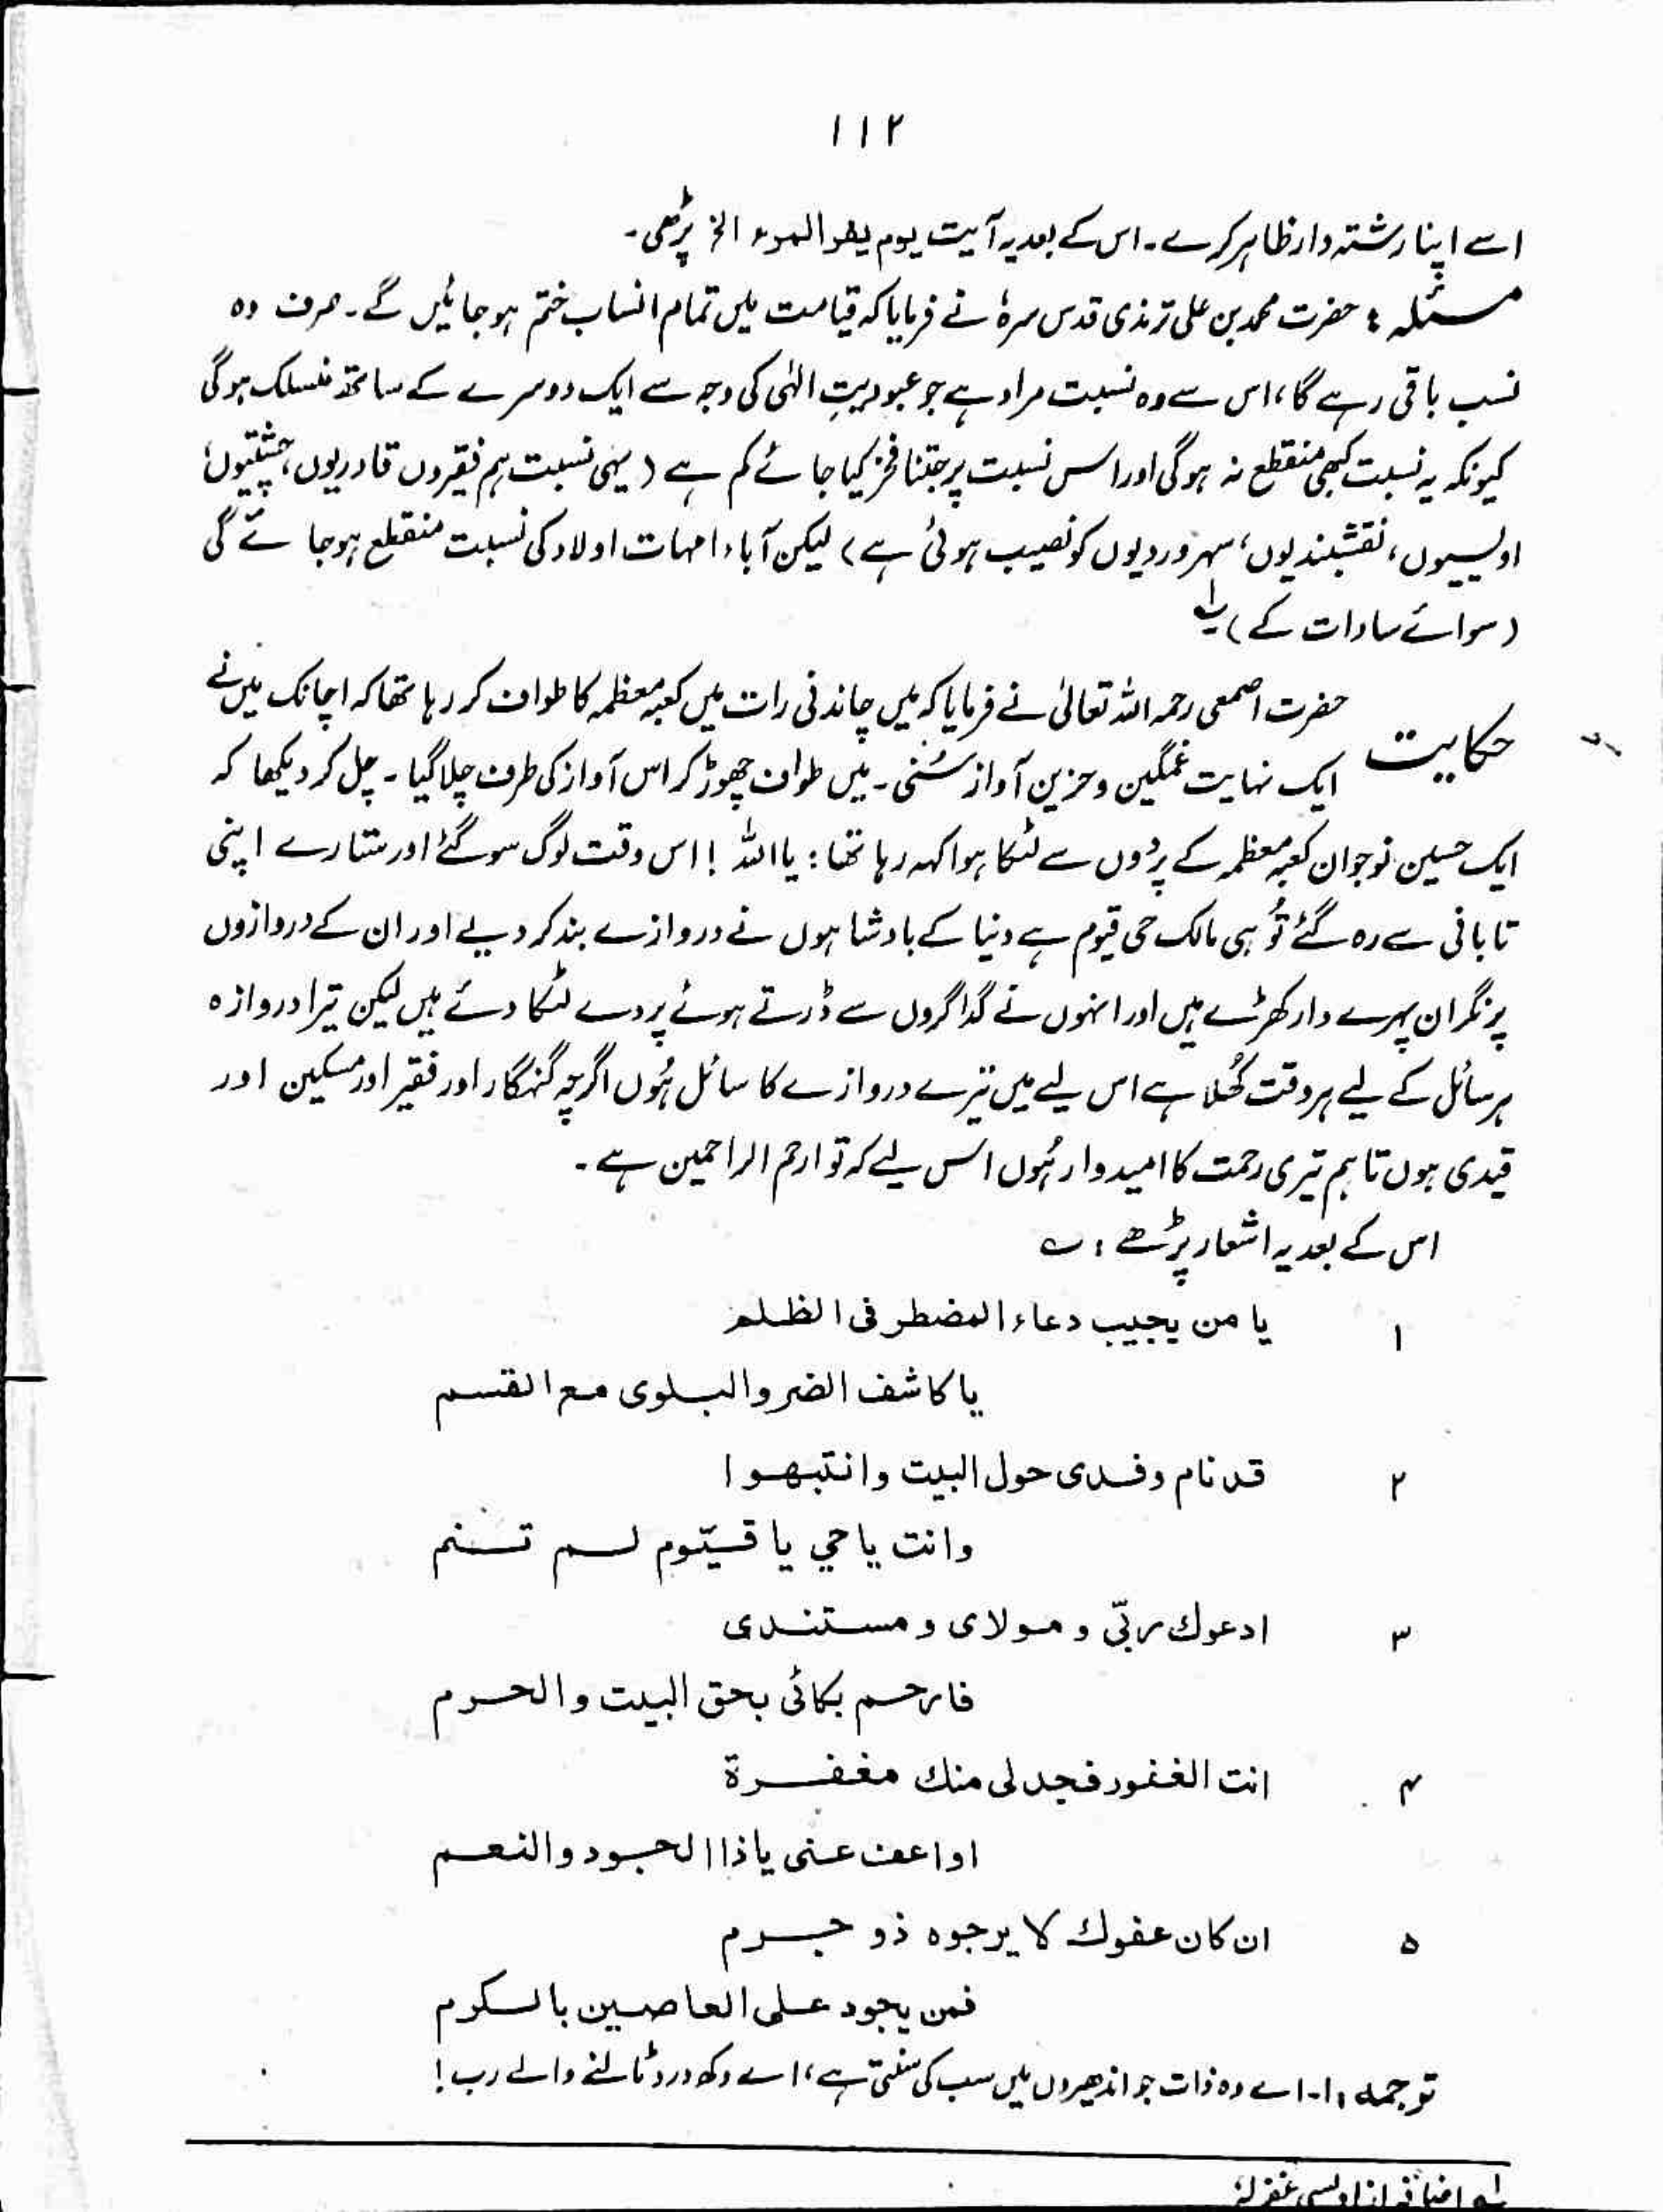 ۱۱۲
اسے اپنا رشتہ دار ظاہر کرے۔ اس کے بعد یہ آیت یوم یفر المرء الخ پڑھی۔
مسئلہ: حضرت محمد بن علی ترمذی قدس سرہٗ نے فرمایا کہ قیامت میں تمام انساب ختم ہو جائیں گے۔ صرف وہ
نسب باقی رہے گا، اس سے وہ نسبت مراد ہے جو عبودیتِ الٰہی کی وجہ سے ایک دوسرے کے ساتھ منسلک ہوگی
کیونکہ یہ نسبت کبھی منقطع نہ ہوگی اور اس نسبت پر جتنا فخر کیا جائے کم ہے (یہی نسبت ہم فقیروں قادریوں، چشتیوں،
اویسیوں، نقشبندیوں، سہروردیوں کو نصیب ہوئی ہے) لیکن آباء امہات اولاد کی نسبت منقطع ہو جائے گی
(سوائے سادات کے)۔ لہ
حضرت اصمعی رحمہ اللہ تعالیٰ نے فرمایا کہ میں چاندنی رات میں کعبہ معظمہ کا طواف کر رہا تھا کہ اچانک میں نے
حکایت ایک نہایت غمگین و حزین آواز سُنی۔ میں طواف چھوڑ کر اس آواز کی طرف چلا گیا۔ چل کر دیکھا کہ
ایک حسین نوجوان کعبہ معظمہ کے پردوں سے لٹکا ہوا کہہ رہا تھا: یا اللہ! اس وقت لوگ سو گئے اور ستارے اپنی
تابانی سے رہ گئے تُو ہی مالک حی قیوم ہے دنیا کے بادشاہوں نے دروازے بند کر دیے اور ان کے دروازوں
پر نگران پہرے دار کھڑے ہیں اور انہوں نے گداگروں سے ڈرتے ہوئے پردے لٹکا دئے ہیں لیکن تیرا دروازہ
ہر سائل کے لیے ہر وقت کُھلا ہے اس لیے میں تیرے دروازے کا سائل ہُوں اگرچہ گنہگار اور فقیر اور مسکین اور
قیدی ہوں تاہم تیری رحمت کا امیدوار ہُوں اس لیے کہ تو ارحم الراحمین ہے۔
اس کے بعد یہ اشعار پڑھے: ؎
۱ یا من یجیب دعاء المضطر فی الظلم
یا کاشف الضر والبلوی مع القسم
۲ قد نام وفدی حول البیت وانتبهوا
وانت یا حي یا قیّوم لم تنم
۳ ادعوك ربّی و مولای و مستندی
فارحم بکائی بحق البیت والحرم
۴ انت الغفور فجد لی منك مغفرة
او اعف عنی یا ذا الجود والنعم
۵ ان کان عفوك لا یرجوه ذو جرم
فمن یجود علی العاصین بالکرم
ترجمہ: ۱۔ اے وہ ذات جو اندھیروں میں سب کی سنتی ہے، اے دکھ درد ٹالنے والے رب!
لہ اضافہ از اویسی غفرلہٗ